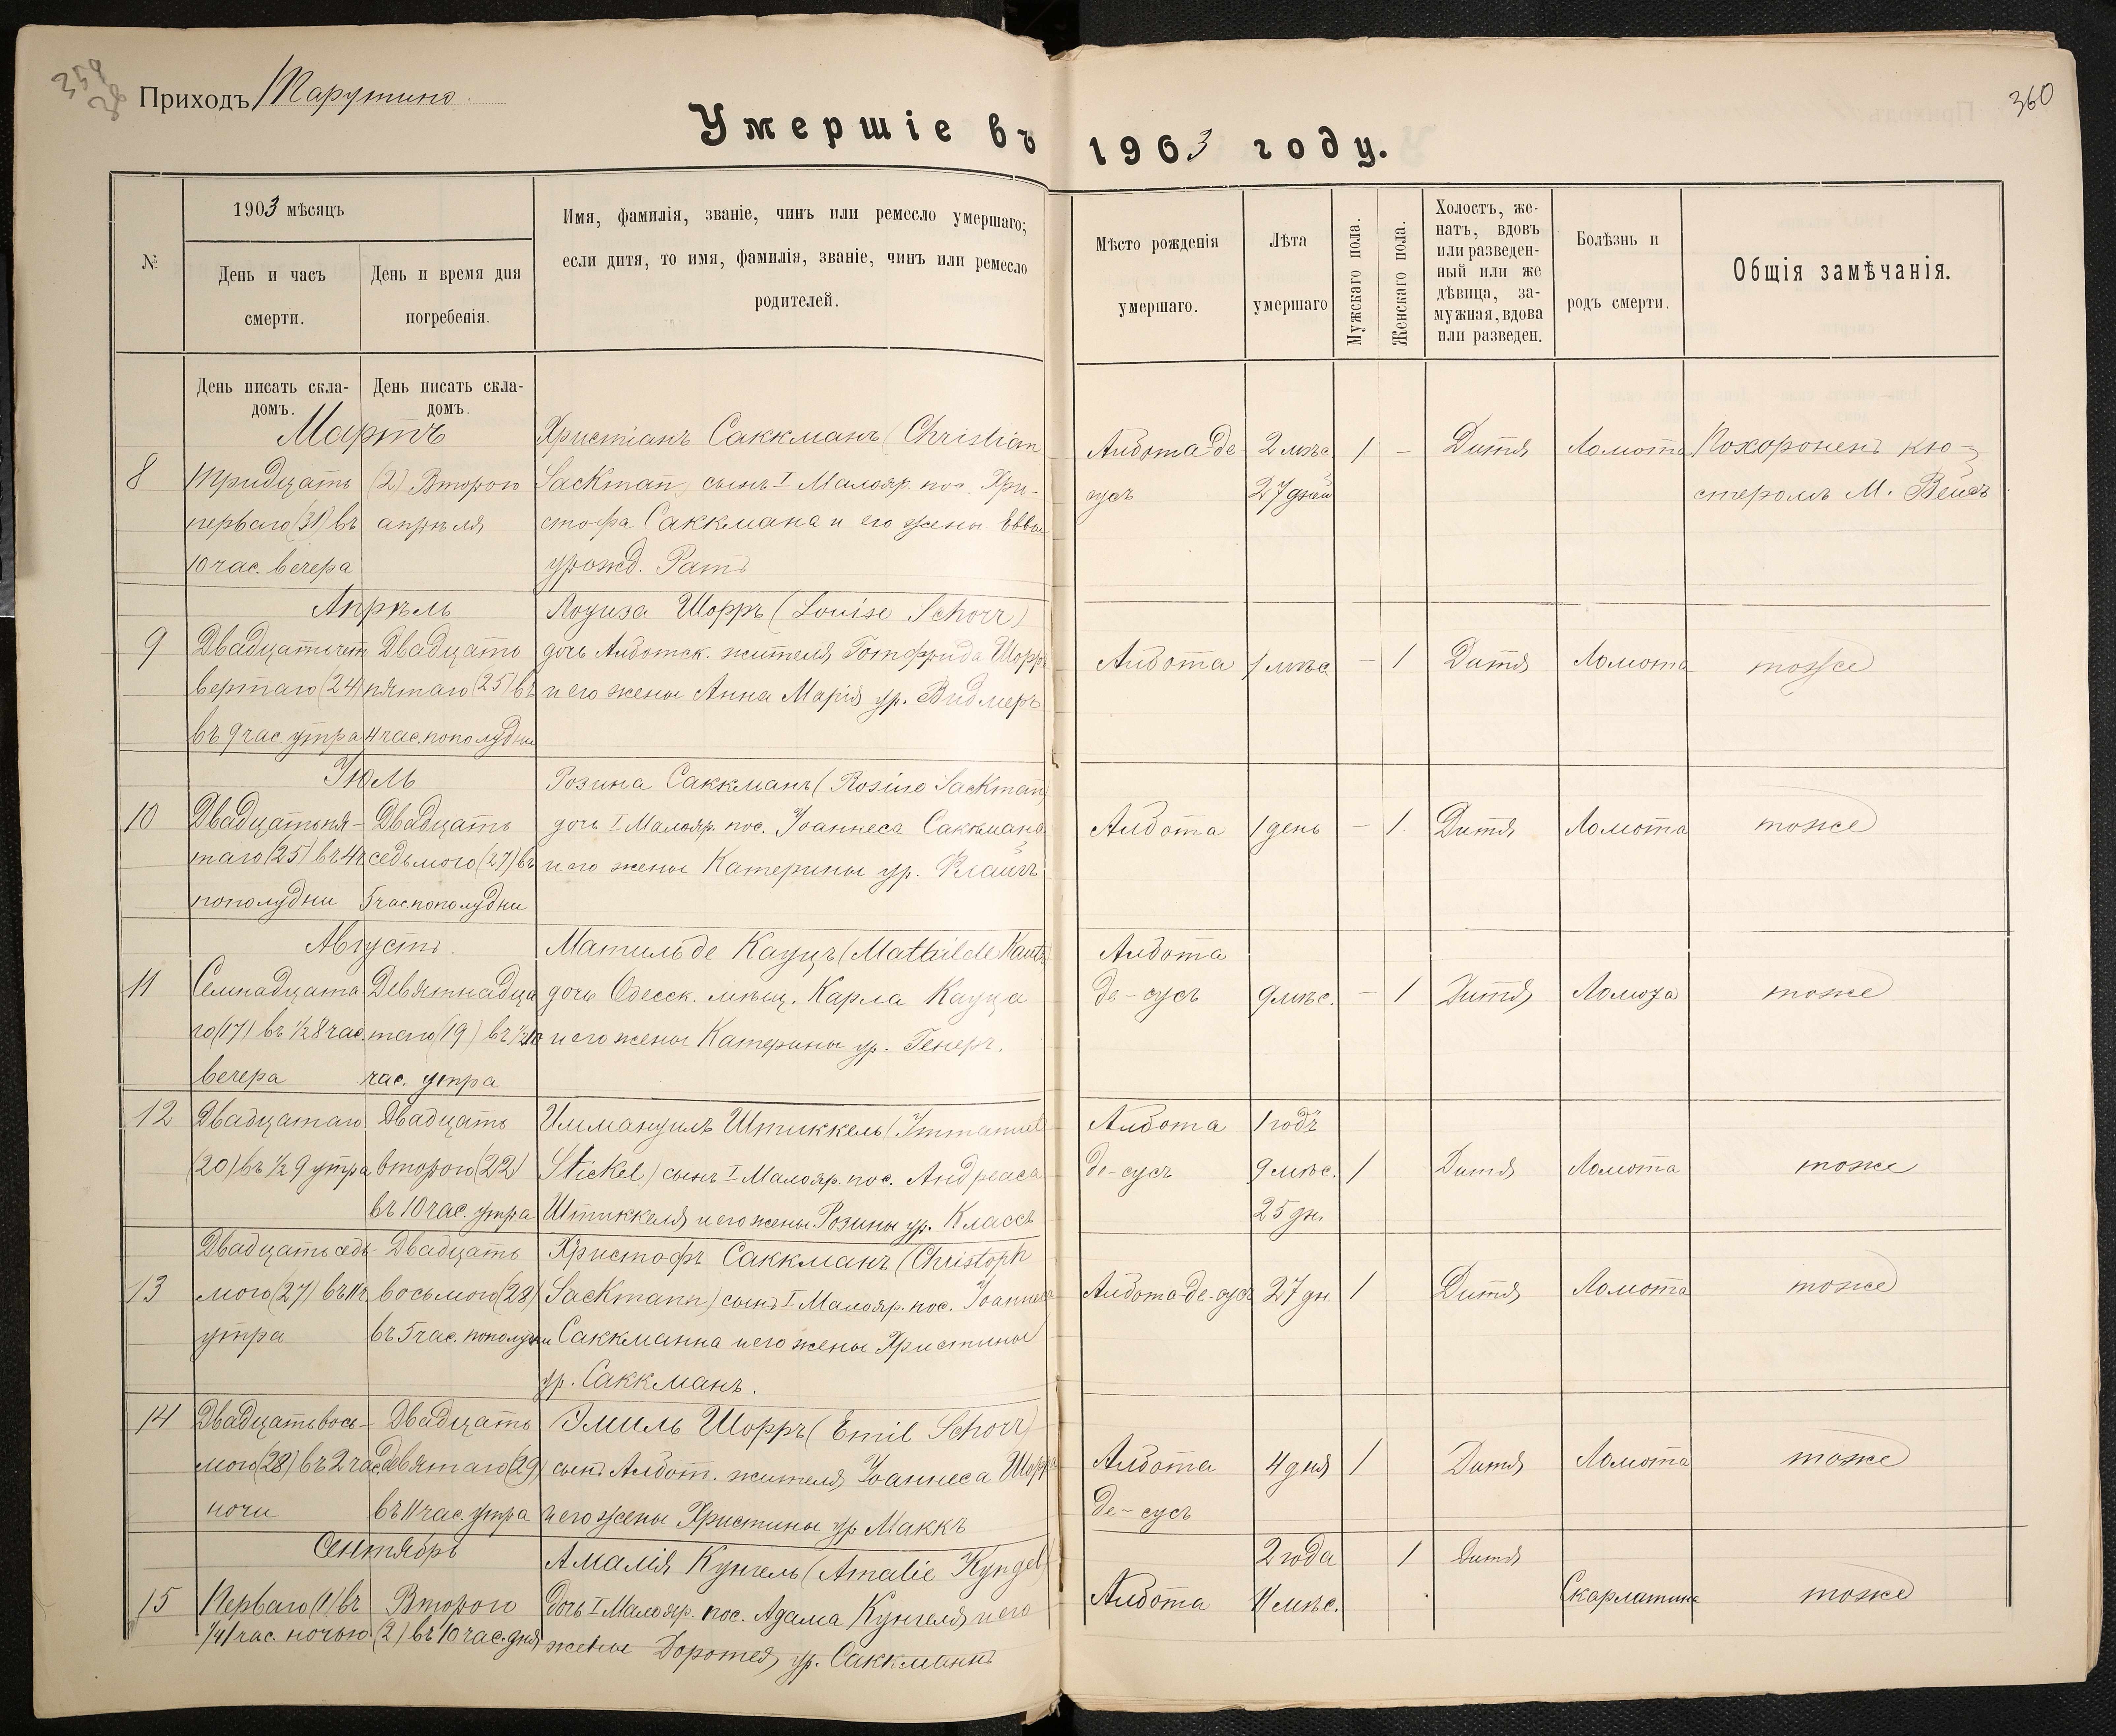 359
360
Приходъ Тарутино.
Умершіе въ 1903 году.
№
1903 мѣсяцъ
День и часъ смерти.
День и время дня погребенія.
Имя, фамилія, званіе, чинъ или ремесло умершаго;
если дитя, то имя, фамилія, званіе, чинъ или ремесло
родителей.
Мѣсто рожденія
умершаго.
Лѣта
умершаго
Мужскаго пола.
Женскаго пола.
Холостъ, же-
натъ, вдовъ
или разведен-
ный или же
дѣвица, за-
мужная, вдова
или разведен.
Болѣзнь и
родъ смерти.
Общія замѣчанія.
День писать скла-
домъ.
День писать скла-
домъ.
Мартъ
8
Тридцать
перваго (31) въ
10 час. вечера
(2) Второго
апрѣля
Христіанъ Саккманъ (Christian
Sackman) сынъ I Малояр. пос. Хри-
стофа Саккмана и его жены Еввы
урожд. Ратъ
Алботa-де-
сусъ
2 мѣс
27 дней
1
–
Дитя
Ломота
Похороненъ кю-
стеромъ М. Вейсъ
Апрѣль
9
Двадцать чет
вертаго (24)
въ 9 час. утра
Двадцать
пятаго (25) въ
4 час. пополудни
Лоуиза Шорръ (Louise Schorr)
дочь Алботск. жителя Готфрида Шорръ
и его жены Анна Марія ур. Видмеръ
Албота
1 мѣс
–
1
Дитя
Ломота
тоже
Іюль
10
Двадцать пя-
таго (25) въ 4 ч
пополудни
Двадцать
седьмого (27) въ
5 час. пополудни
Розина Саккманъ (Rosine Sackman)
дочь I Малояр. пос. Іоаннеса Саккмана
и его жены Катерины ур. Клайнъ
Албота
1 день
–
1.
Дитя
Ломота
тоже
Августъ.
11
Семнадцата
го (17) въ ½ 8 час
вечера
Девятнадца
таго (19) въ ½ 10
час. утра
Матильде Кауцъ (Mathilde Kautz)
дочь Одесск. мѣщ. Карла Кауца
и его жены Катерины ур. Генеръ.
Албота
де-сусъ
9 мѣс.
–
1
Дитя
Ломота
тоже
12
Двадцатаго
(20) въ ½ 9 утра
Двадцать
второго (22)
въ 10 час. утра
Иммануилъ Штиккель (Immanuel
Stickel) сынъ I Малояр. пос. Андреаса
Штиккеля и его жены Розины ур. Классъ
Албота
де-сусъ
1 годъ
9 мѣс.
25 дн.
1
Дитя
Ломота
тоже
13
Двадцать седь-
мого (27) въ 11 ч
утра
Двадцать
восьмого (28)
въ 5 час. пополудни
Христофъ Саккманъ (Christoph
Sackmann) сынъ I Малояр. пос. Іоаннеса
Саккманна и его жены Христины
ур. Саккманъ.
Албота-де-сусъ
27 дн
1
Дитя
Ломота
тоже
14
Двадцать вось-
мого (28) въ 2 час
ночи
Двадцать
девятаго (29)
въ 11 час. утра
Эмиль Шорръ (Emil Schorr)
сынъ Албот. жителя Іоаннеса Шорръ
и его жены Христины ур Маккъ
Албота
де-сусъ
4 дня
1
Дитя
Ломота
тоже
Сентябрь
15
Перваго (1) въ
час. ночью
Второго
(2) въ 10 час. дня
Амалія Кунгель (Amalie Kyngel)
дочь I Малояр. пос. Адама Кунгеля и его
жены Доротея, ур. Саккманъ
Албота
2 года
11 мѣс.
1
Дитя
Скарлатина
тоже